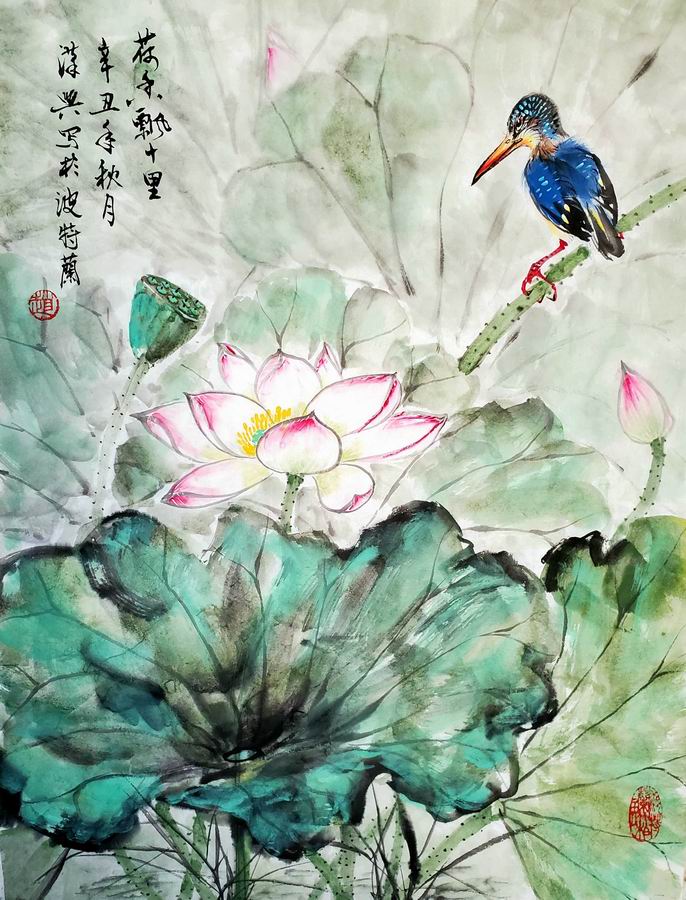 荷香飘十里
辛丑年秋月
泽兴写于波特兰